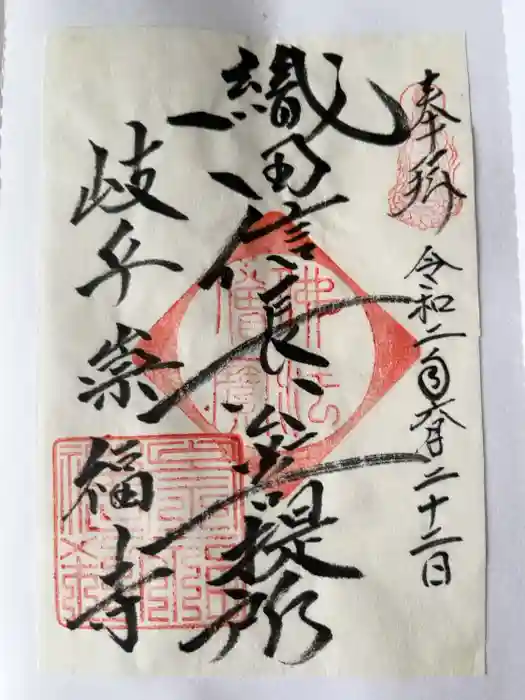 奉拝
令和二年六月二十二日
織田信長公菩提所
佛法
僧寶
岐阜崇福寺